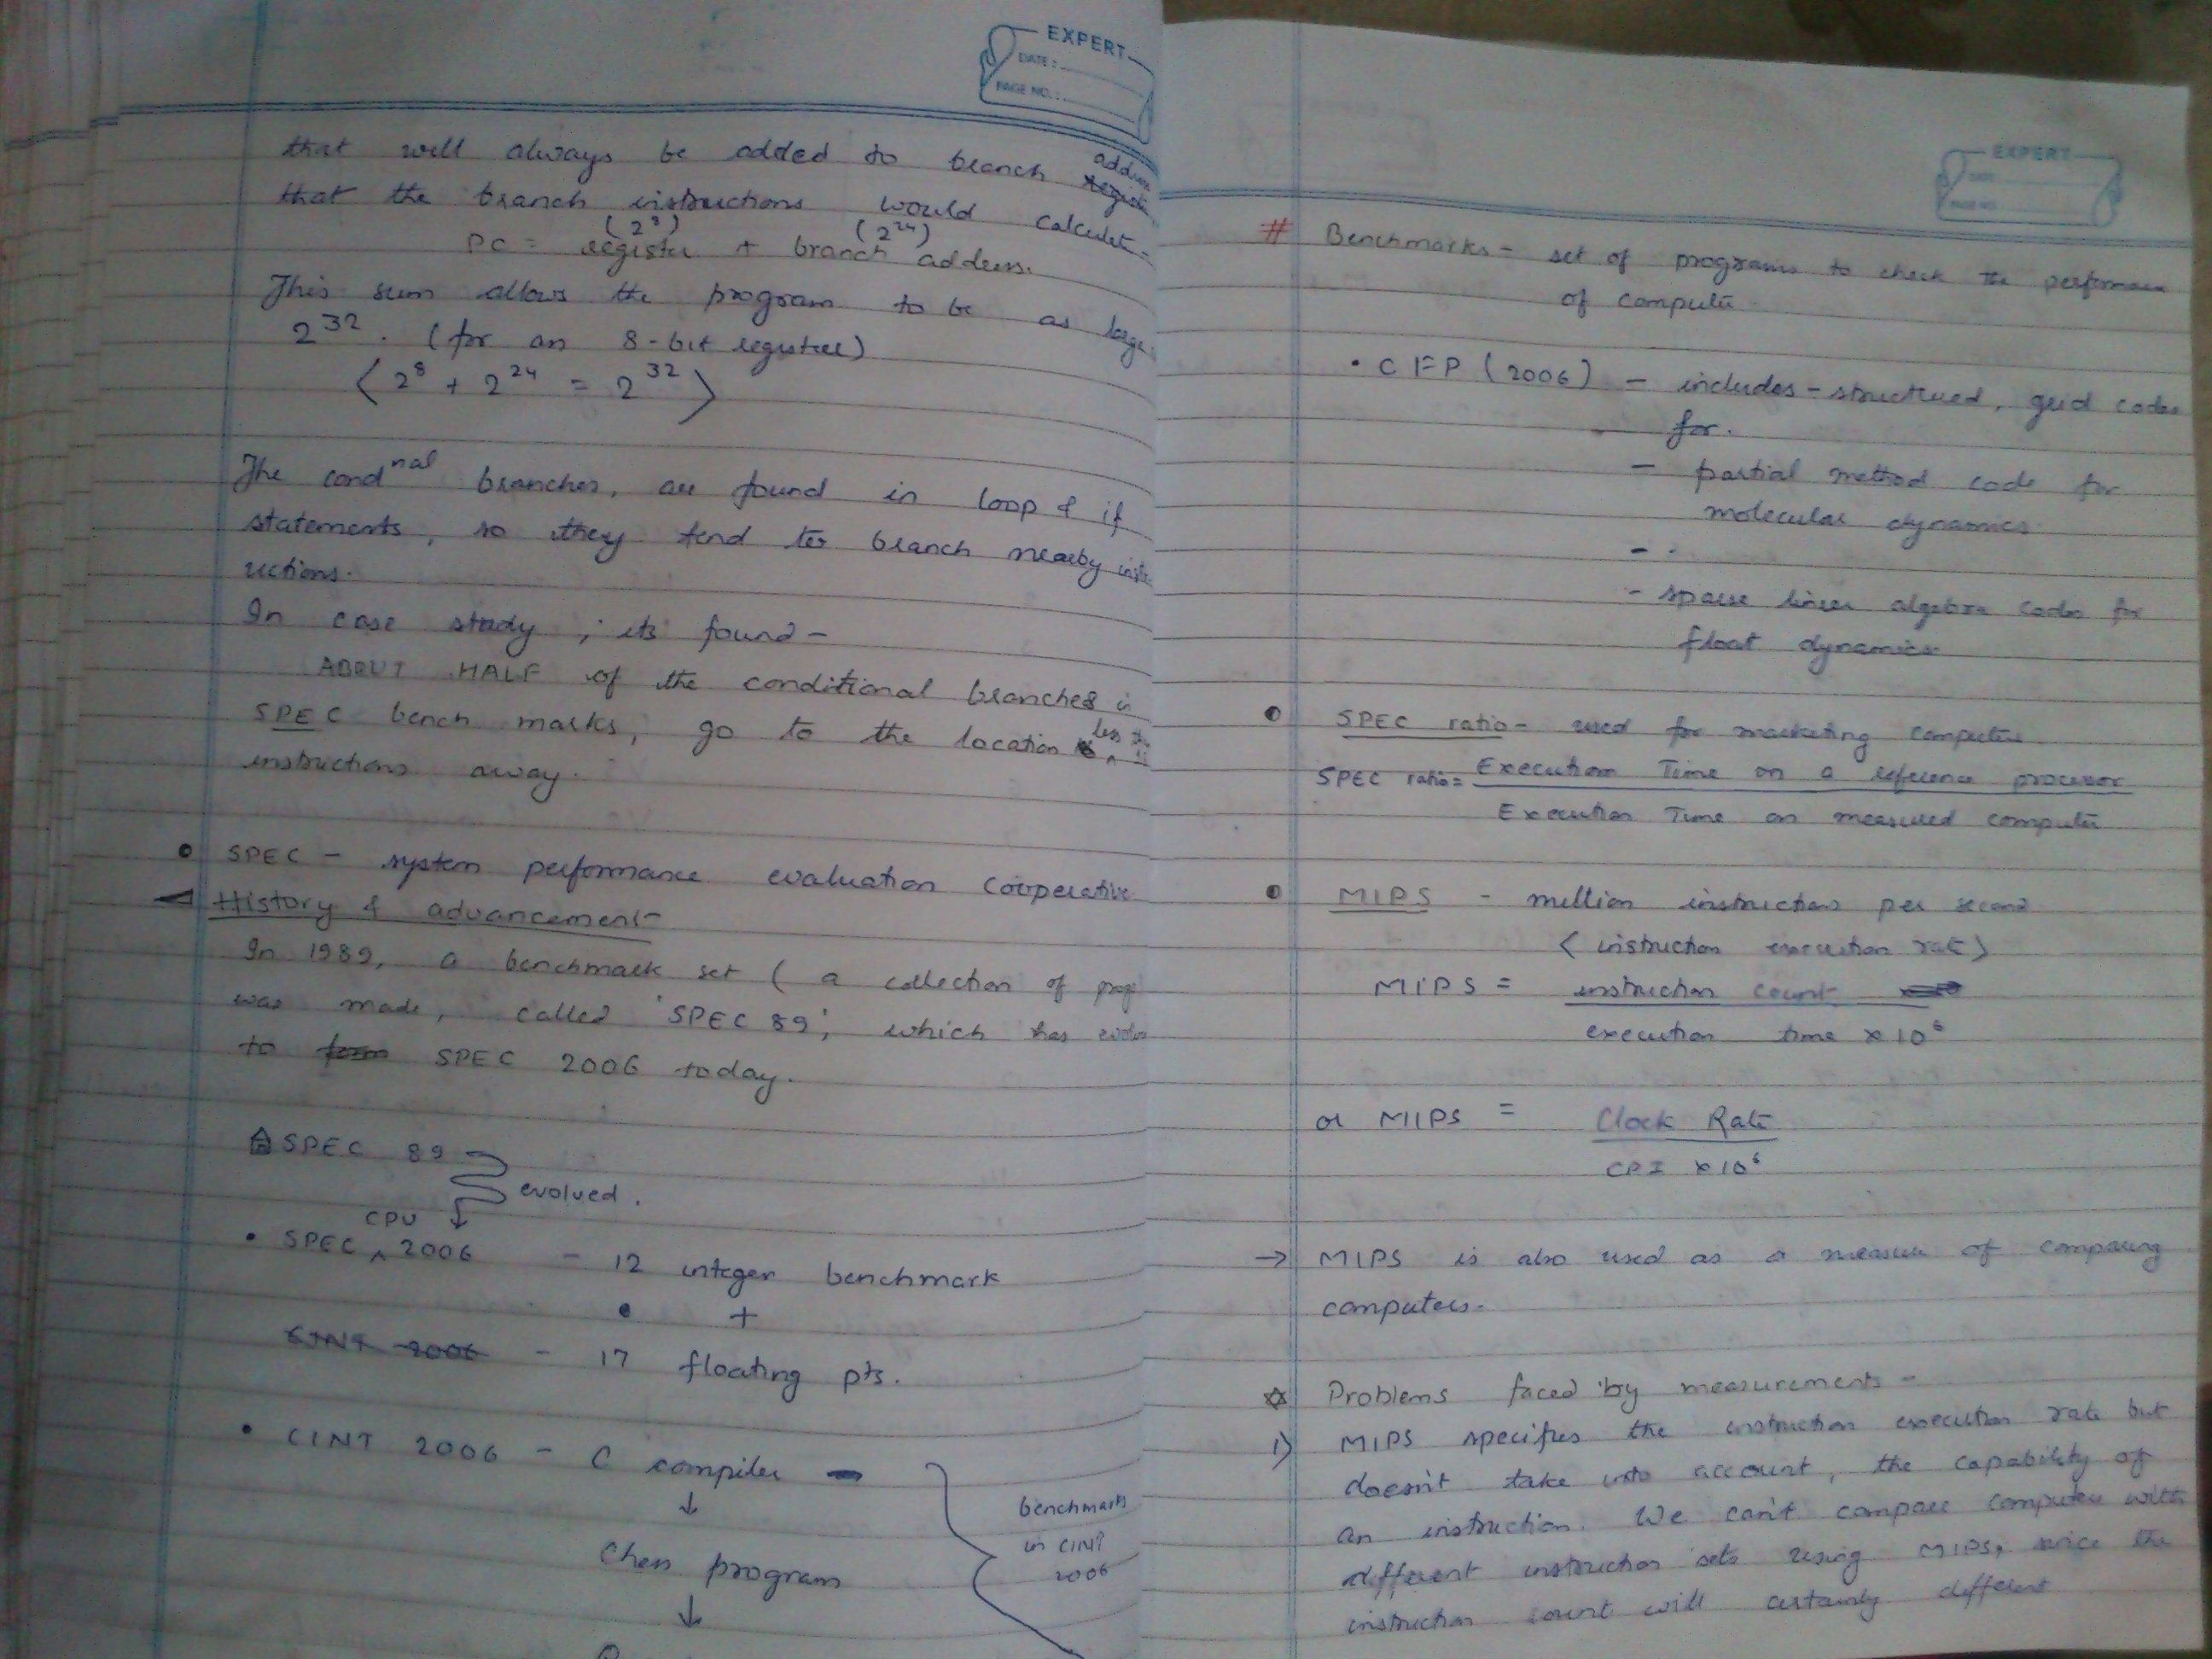 EXPERT
DATE :
PAGE NO. :
that will always be added to branch address
that the branch instructions would calculate
(2^8) (2^24)
PC = register + branch address.
This sum allows the program to be as large
2^32. (for an 8-bit register)
⟨2^8 + 2^24 = 2^32⟩
The cond^nal branches, are found in loop & if
statements, so they tend to branch nearby instr
uctions.
In case study, its found -
ABOUT HALF of the conditional branches in
SPEC bench marks, go to the location less
instructions away.
• SPEC - system performance evaluation cooperative
History & advancement -
In 1989, a benchmark set ( a collection of prog
was made, called 'SPEC 89', which has
to SPEC 2006 today.
SPEC 89
evolved.
CPU
• SPEC ^ 2006 - 12 integer benchmark
• +
CINT 2006 - 17 floating pts.
• CINT 2006 - C compiler
↓
Chess program
↓
benchmarks
in CINT
2006
EXPERT
DATE
PAGE NO.
# Benchmarks - set of programs to check the performance
of computer
• CFP (2006) - includes - structured, grid codes
for.
- partial method code for
molecular dynamics
- .
- sparse linear algebra codes for
float dynamics
• SPEC ratio - used for marketing computers
SPEC ratio = Execution Time on a reference processor
Execution Time on measured computer
• MIPS - million instructions per second
⟨ instruction execution rate ⟩
MIPS = instruction count
execution time × 10^6
or MIPS = Clock Rate
CPI × 10^6
→ MIPS is also used as a measure of comparing
computers.
☆ Problems faced by measurements -
1) MIPS specifies the instruction execution rate but
doesn't take into account, the capability of
an instruction. We can't compare computers with
different instruction sets using MIPS, since the
instruction count will certainly different